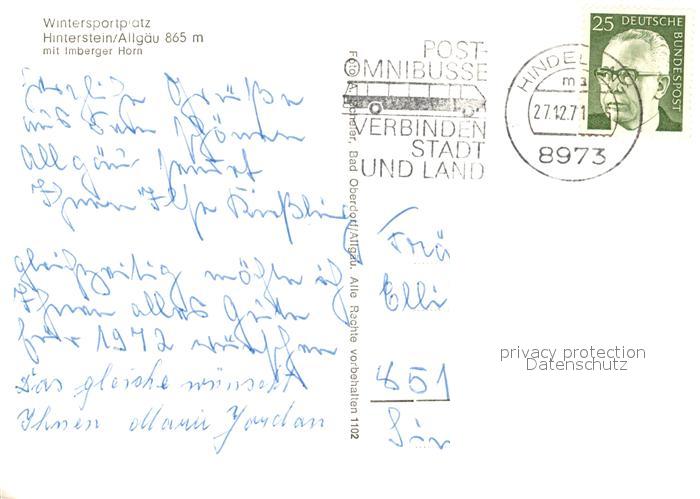 Wintersportplatz
Hinterstein/Allgäu 865 m
mit Imberger Horn
Herzliche Grüße
aus dem schönen
Allgäu sendet
Ihnen Ilse Kießling
gleichzeitig möchte ich
Ihnen alles Gute
für 1972 wünschen
Das gleiche wünscht
Ihnen Marie Jordan
Foto A. Bad Oberdorf/Allgäu. Alle Rechte vorbehalten 1102
POST-
OMNIBUSSE
VERBINDEN
STADT
UND LAND
HINDEL
27.12.71
8973
25 DEUTSCHE
BUNDESPOST
Elli
851
privacy protection
Datenschutz